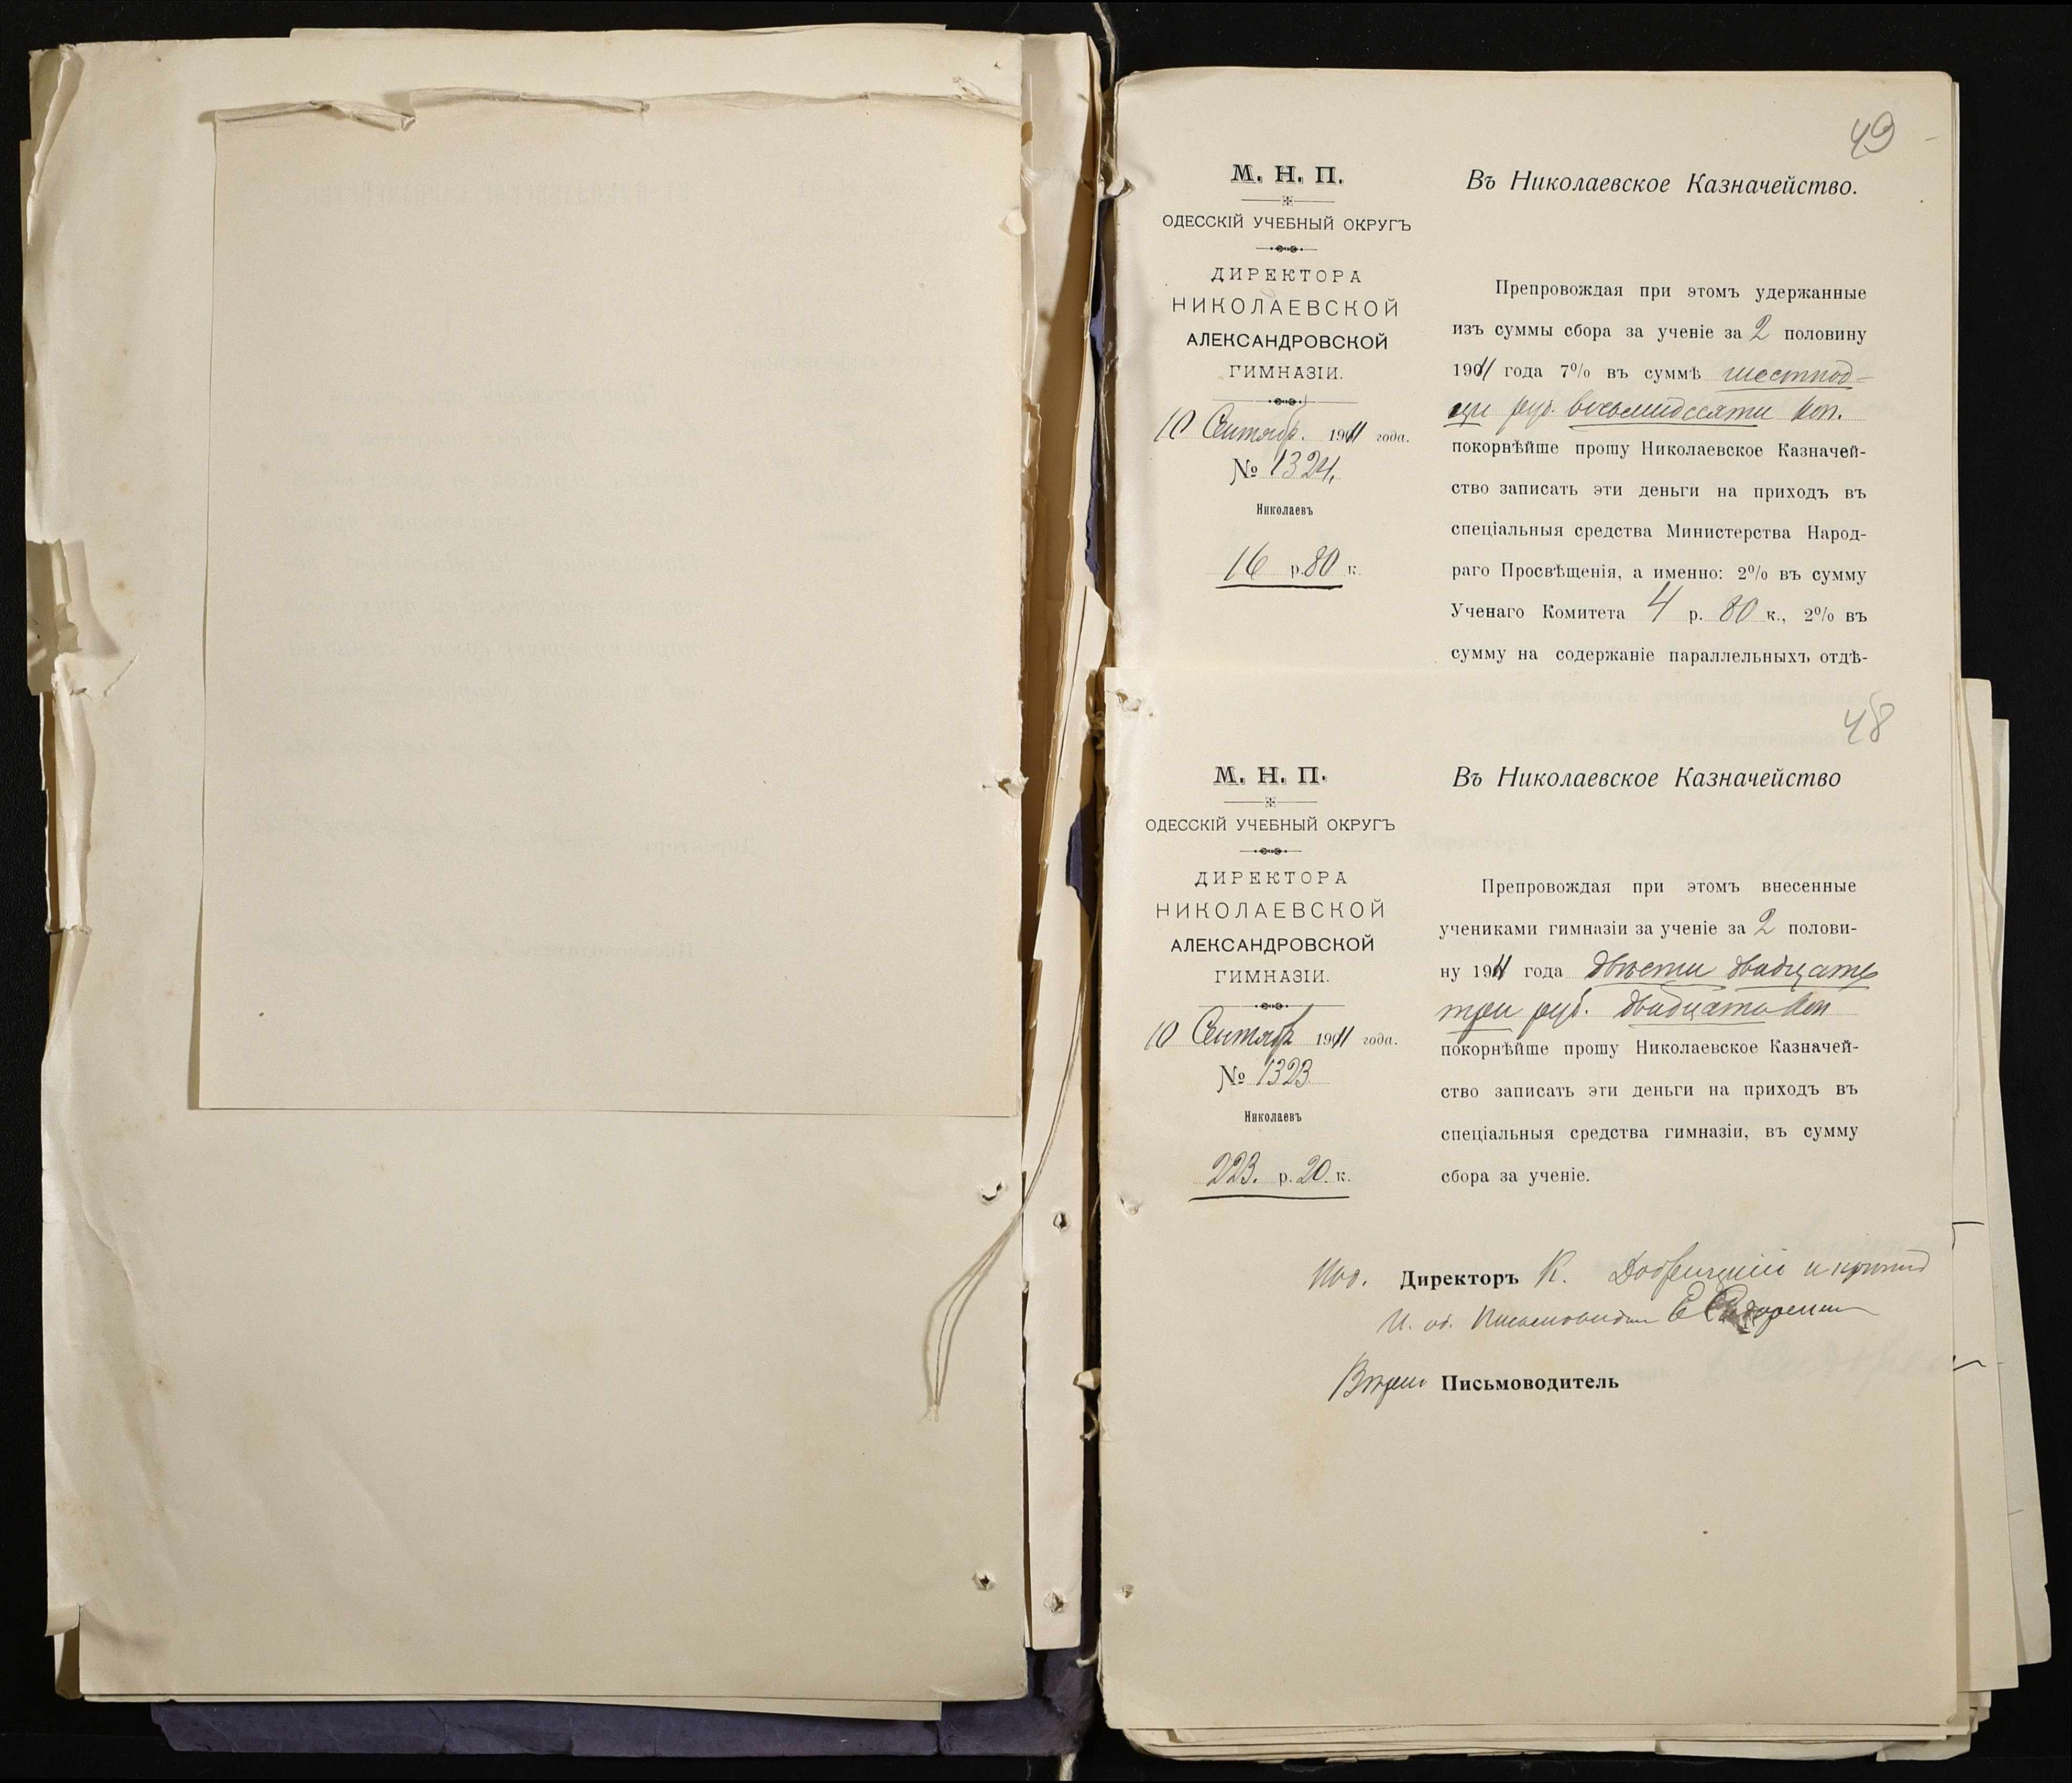 49
М. Н. П.
ОДЕССКІЙ УЧЕБНЫЙ ОКРУГЪ
ДИРЕКТОРА
НИКОЛАЕВСКОЙ
АЛЕКСАНДРОВСКОЙ
ГИМНАЗІИ.
10 Сентябр. 1911 года.
№ 1324.
Николаевъ
16 р. 80 к.
Въ Николаевское Казначейство.
Препровождая при этомъ удержанные
изъ суммы сбора за ученіе за 2 половину
1911 года 7% въ суммѣ шестнад-
руб. восьмидесяти коп.
покорнѣйше прошу Николаевское Казначей-
ство записать эти деньги на приходъ въ
спеціальныя средства Министерства Народ-
раго Просвѣщенія, а именно: 2% въ сумму
Ученаго Комитета 4 р. 80 к., 2% въ
сумму на содержаніе параллельныхъ отдѣ-
48
М. Н. П.
ОДЕССКІЙ УЧЕБНЫЙ ОКРУГЪ
ДИРЕКТОРА
НИКОЛАЕВСКОЙ
АЛЕКСАНДРОВСКОЙ
ГИМНАЗІИ.
10 Сентябр 1911 года.
№ 1323
Николаевъ
223. р. 20. к.
Въ Николаевское Казначейство
Препровождая при этомъ внесенные
учениками гимназіи за ученіе за 2 полови-
ну 1911 года двѣсти двадцать
три руб. двадцать коп
покорнѣйше прошу Николаевское Казначей-
ство записать эти деньги на приходъ въ
спеціальныя средства гимназіи, въ сумму
сбора за ученіе.
Директоръ К.
И. об. Письмоводит
Письмоводитель